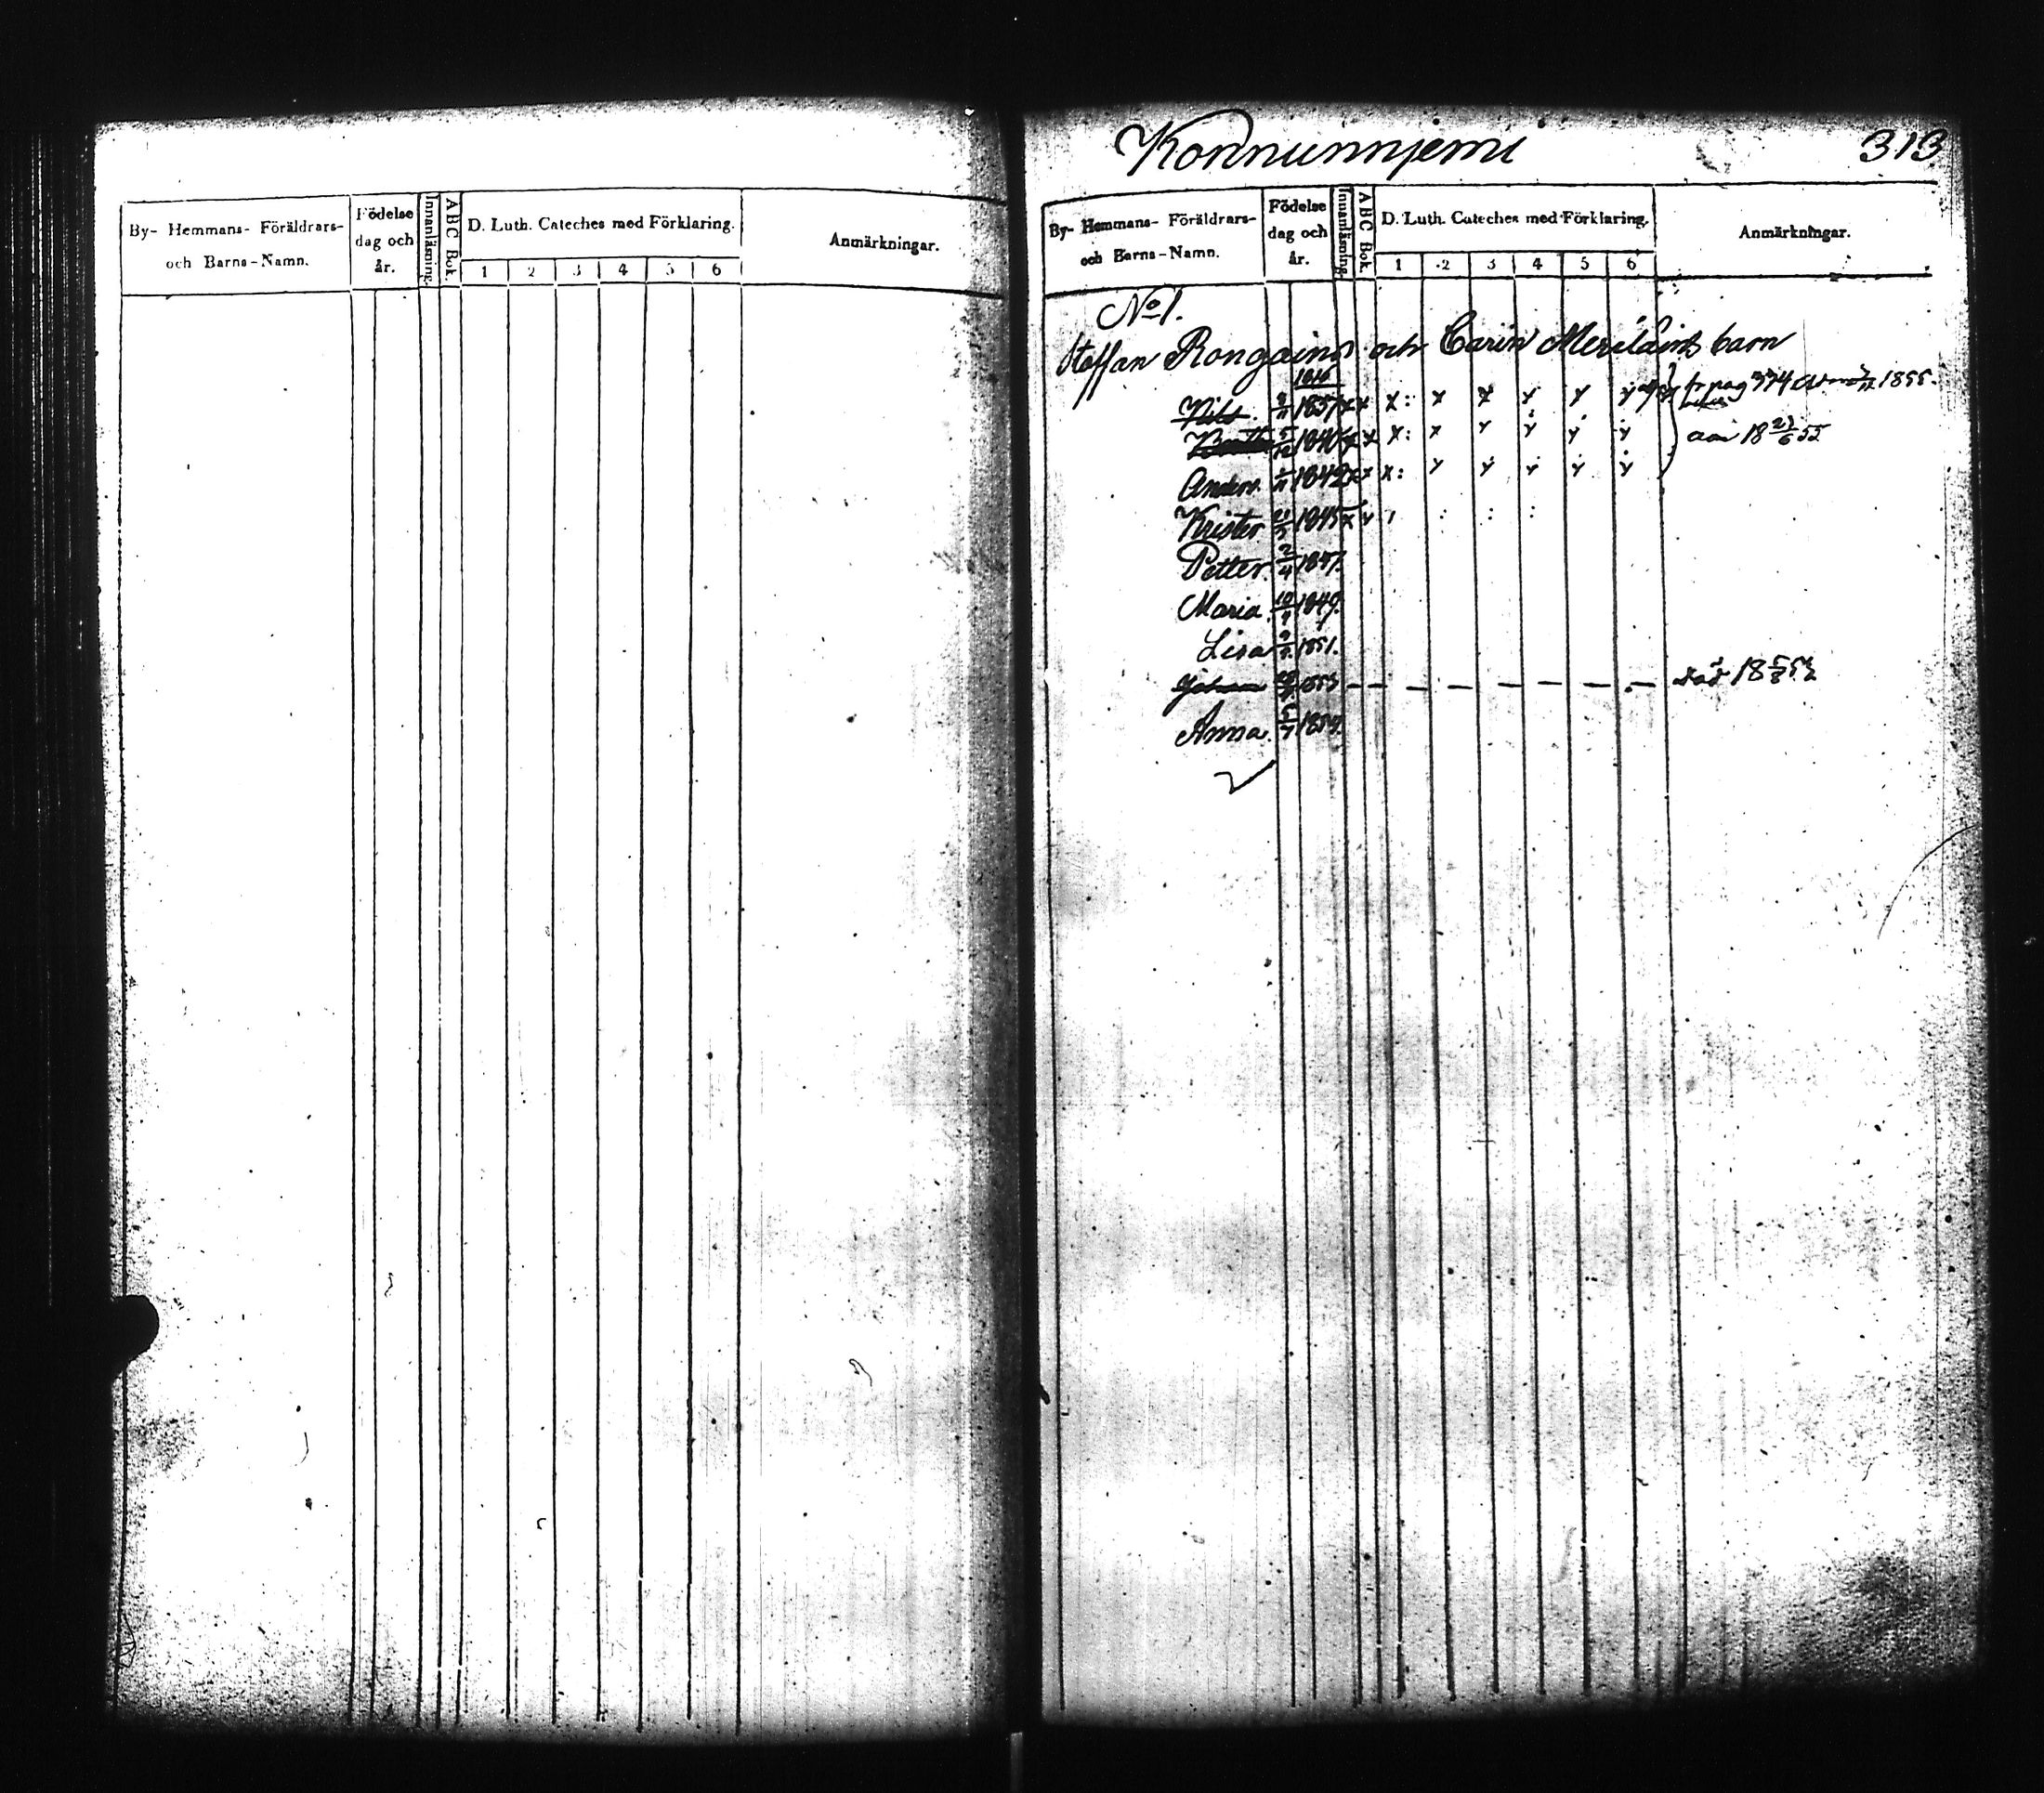 By- Hemmans- Föräldrars-
och Barns-Namn.
Födelse
dag och
år.
Innanläsning.
ABC Bok.
D. Luth. Cateches med Förklaring.
1 2 3 4 5 6
Anmärkningar.
Konnunnjemi 313
By- Hemmans- Föräldrars-
och Barns-Namn.
Födelse
dag och
år.
Innanläsning.
ABC Bok.
D. Luth. Cateches med Förklaring.
1 2 3 4 5 6
Anmärkningar.
No 1.
Steffan Rongain och Carin Meriläin's barn
Nils 1837 x x x: x x x x x pag 1855.
5/12 1840 x x x: x x x x x
Anders 1842 x x x: x x x x x
Krister 1845 x x
Petter. 2/4 1847.
Maria. 10/9 1849.
Lisa 1851.
Johan 1853 — — — — — — — död
Anna. 5/7 1854.